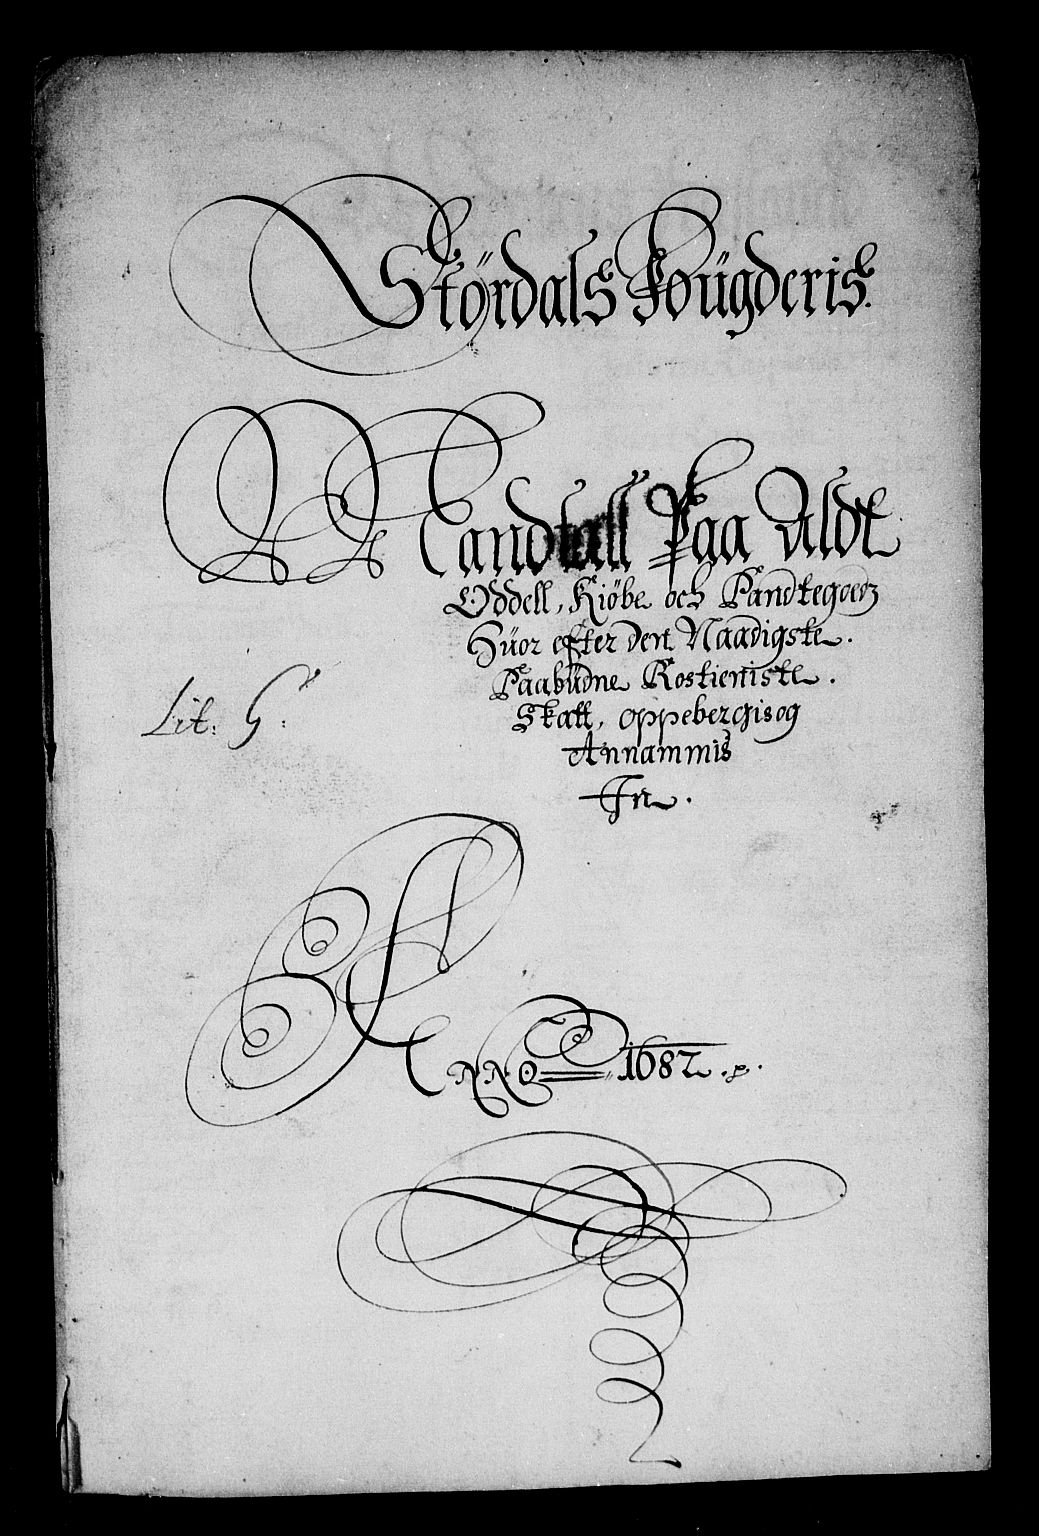 Stördals Foügderis.
Mandtall Paa Aldt
Oddell, Kiöbe och Pandtegoedz
Hüor efter dent Naadigste.
Paabüdne Rostieniste.
Skatt, oppebergis og
Annammis
In.
Lit. G.
ANNO 1682.